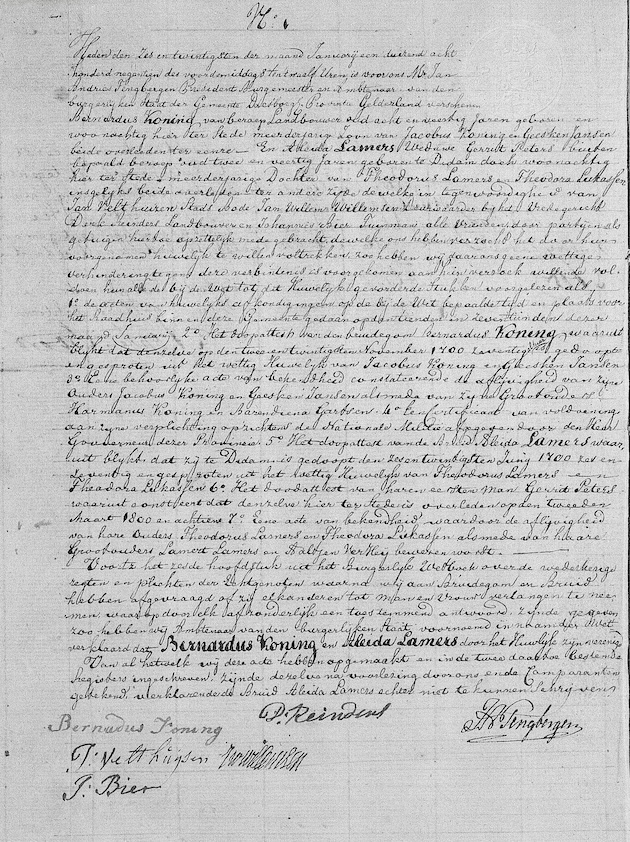 No: 1
Heden den Zes en twintigsten der maand Januarij een duizend acht
honderd negentien des voordemiddags ten twaalf Uren is voor ons Mr Jan
Andries Tengbergen President Burgemeester en Ambtenaar van den
burgerlijken staat der Gemeente Doesborg, Provintie Gelderland verschenen
Bernardus Koning, van beroep Landbouwer oud acht en veertig Jaren geboren en
woonachtig hier ter stede meerderjarige Zoon van Jacobus Koning en Geesken Jansen
beide overleden ter eenre En Aleida Lamers Weduwe Gerrit Peters buiten
bepaald beroep oud twee en veertig jaren geboren te Didam doch woonachtig
hier ter stede meerderjarige Dochter van Theodorus Lamers en Theodora Lukassen
insgelijks beide overleden ter andere zijde dewelke in tegenwoordigheid van
Jan Velthuizen Stadt Bode Jan Willem Willemsen Deurwaarder by het Vrede geregt
Derk Reinders Landbouwer en Johannes Bier Tuinman, alle Vrienden door partijen als
getuigen hier toe opzettelijk mede gebracht, dewelke ons hebben verzocht het door hun
voorgenomen huwelijk te willen voltrekken, zoo hebben wij daar aan geene wettige
verhindering tegens deze verbindenis is voorgekomen aan hun verzoek willende vol
doen hun alle de bij de Wet tot dit Huwelijk gevorderde stukken voorgelezen als,
1o de acten van huwelijks afkondigingen op de bij de Wet bepaalde tyd en plaats voor
het Raadhuis binnen deze Gemeente gedaan op den tienden en zeventienden dezer
maand January 2o Het doopattest van den bruidegom Bernardus Koning, waaruit
blykt dat denzelve op den twee en twintigsten November 1700 zeventig gedoopt
en gesproten uit het wettig Huwelijk van Jacobus Koning en Geesken Jansen
3o Eene behoorlijke acte van bekendheid constateerende de aflyvigheid van zyne
Ouders Jacobus Koning en Geesken Jansen alsmede van zyne Grootouders
Harmanus Koning en Barendiena Garetsen. 4o een certificaat van voldoening
aan zyne verplichting opzichtens de Nationale Militie afgegeven door den Heer
Gouverneur dezer Provincie 5o Het doopattest van de Bruid Aleida Lamers waar
uit blykt dat zij te Didam is gedoopt den zes en twintigsten Juny 1700 zes en
zeventig en gesproten uit het wettig Huwelyk van Theodorus Lamers en
Theodora Lukassen 6o Het doodattest van haren eersten Man Gerrit Peters
waaruit consteert dat denzelve hier ter stede is overleden op den tweeden
Maart 1800 en achtien 7o Eene acte van bekendheid, waardoor de aflyvigheid
van hare Ouders Theodorus Lamers en Theodora Lukassen alsmede van haare
Grootouders Lamert Lamers en Aaltjen Verheij bewezen wordt
Voorts het zesde hoofdstuk uit het Burgerlijk Wetboek over de wederkeerige
regten en plichten der Echtgenoten waarna wij aan Bruidegom en Bruid
hebben afgevraagd of zij elkanderen tot Man en Vrouw verlangen te nee
men, waar op door elk afzonderlijk een toestemmend antwoord zijnde gegeven
zoo hebben Wij Ambtenaar van den burgerlijken staat voornoemd in naam der Wet
verklaard dat, Bernardus Koning en Aleida Lamers door het Huwelijk zijn vereenigd
Van al hetwelk wij deze acte hebben opgemaakt en in de twee daartoe bestemde
Registers ingeschreven, zijnde dezelve na voorlezing door ons en de Comparanten
getekend, verklaarende de Bruid Aleida Lamers echter niet te kunnen schrijven
Bernadus Koning
D: Reinders
JA Tengbergen
J: Velthuysen JW Willemsen
J: Bier